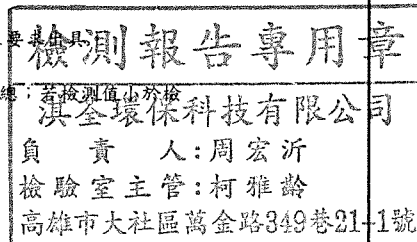 要求出具
檢測報告專用章
總；若檢測值小於檢
淇全環保科技有限公司
負責人：周宏沂
檢驗室主管：柯雅齡
高雄市大社區萬金路349巷21-1號